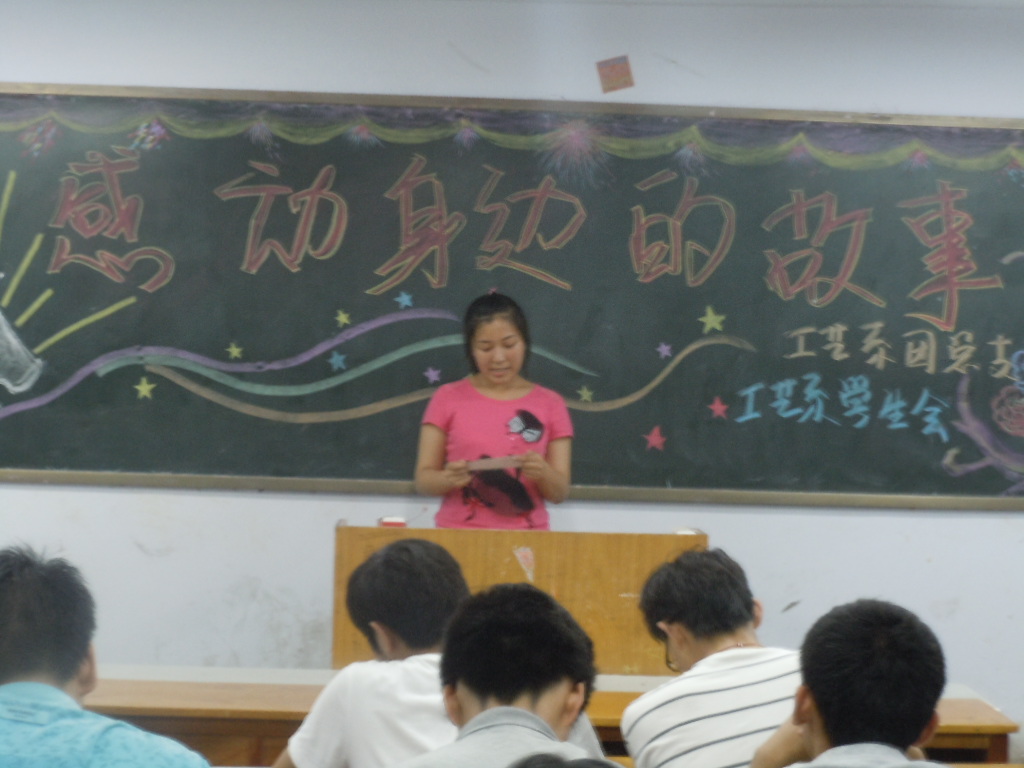 感动身边的故事
工艺系团总支
工艺系学生会